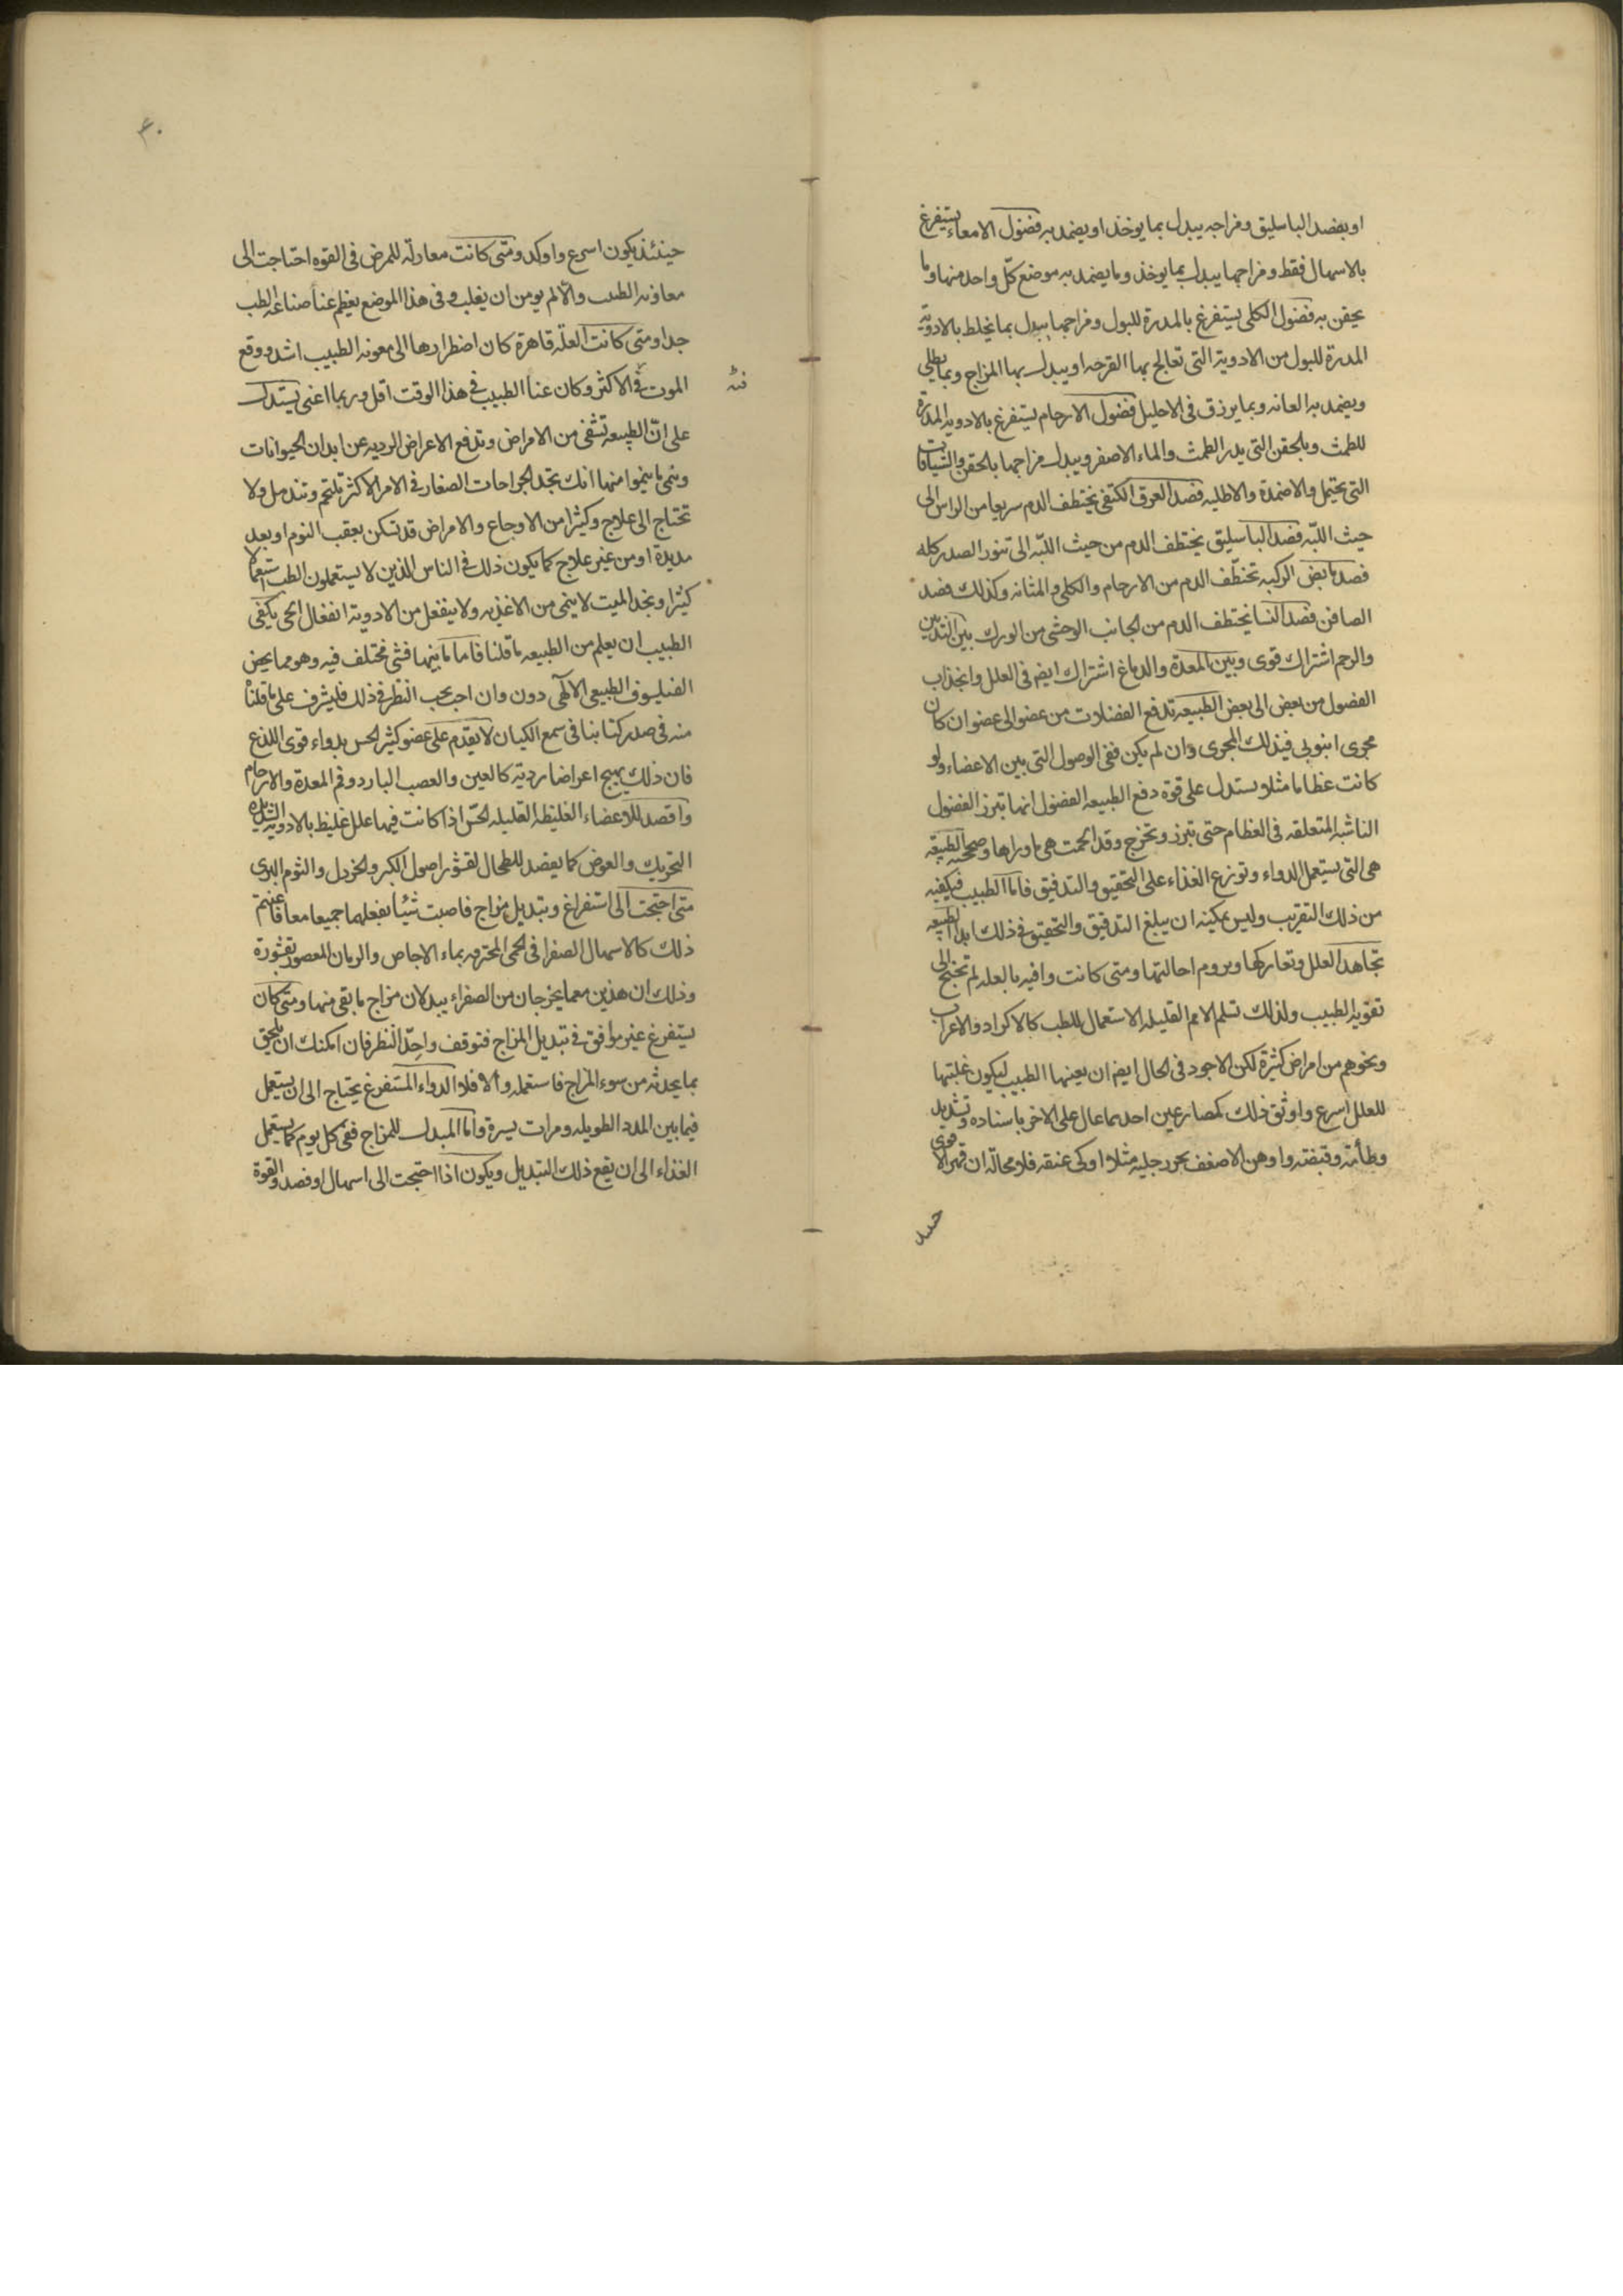 او بفصد الباسليق ومزاجه يبدل بما يوخذ او يضمد به فضول الامعاء يستفرغ
بالاسهال فقط ومزاجها يبدل بما يوخذ وما يضمد به موضع كلّ واحد منها وما
يحقن به فضول الكلى يستفرغ بالمدرة للبول ومزاجها يبدل بما يخلط بالادويه
المدرة للبول من الادوية التى تعالج بها القرحه او يبدل بها المزاج وبما يطلى
ويضمد به العانه وبما يزرق فى الاحليل فضول الارحام يستفرغ بالادويه المدرة
للطمث وبالحقن التى يدر الطمث والماء الاصفر ويبدل مزاجها بالحقن والشيافات
التى يحتمل والاضمدة والاطليه فصد العرق الكتفى يختطف الدم سريعا من الراس الى
حيث اللبّه فصد الباسليق يختطف الدم من حيث اللبّه الى تنور الصدر كله
فصد مابض الركبه تخطّف الدم من الارحام والكلى والمثانه وكذلك فصد
الصافن فصد النسا يختطف الدم من الجانب الوحشى من الورك بين الثديين
والرحم اشتراك قوى وبين المعدة والدماغ اشتراك ايضه فى العلل وانجذاب
الفضول من بعض الى بعض الطبيعه تدفع الفضلات من عضو الى عضو ان كان
مجرى انبوبى فبذلك المجرى وان لم يكن ففى الوصول التى بين الاعضاء ولو
كانت عظاما مثلا ويستدل على قوة دفع الطبيعه الفضول انها تبرز الفضول
الناشبه المتعلقه فى العظام حتى تبرز وتخرج وقد الحمت هى ماوراها وصححته الطبيعه
هى التى يستعمل الدواء وتوزع الغذاء على التحقيق والتدقيق فاما الطبيب فيكفيه
من ذلك التقريب وليس يمكينه ان يبلغ التدقيق والتحقيق فى ذلك ابدا الطبيعه
تجاهد العلل وتعاركها ويروم احالتها ومتى كانت وافيه بالعله لم تحتج الى
تقويه الطبيب ولذلك تسلم الامم القليله الاستعمال للطب كالاكراد والاعراب
ونحوهم من امراض كثيرة لكن الاجود فى الحال ايضه ان يعينها الطبيب ليكون غلبتها
للعلل اسرع واوثق ذلك كمصارعين احدهما عال على الاخر باسناده وتشديد
وطأته وقبضته واوهن الاضعف بحور جليه مثلا او كى عنقه فلا محالّه ان قهر الاقوى
حيند
٤٠
حينئذ يكون اسرع واوكد ومتى كانت معادلة للمرض فى القوه احتاجت الى
معاونه الطب والّا لم يومن ان يغلب وفى هذا الموضع يعظم عنا صناعة الطب
جدا ومتى كانت العلّه قاهرة كان اضطرارها الى معونه الطبيب اشد ووقع
الموت فى الاكثر وكان عنا الطبيب فى هذا الوقت اقل وربما اغنى يستدل
على انّ الطبيعه تشفى من الامراض وتدفع الاعراض الرديه عن ابدان الحيوانات
وينمى ما ينموا منها انك تجد الجراحات الصغار فى الامر الاكثر تلتحم وتندمل ولا
تحتاج الى علاج وكثيرا من الاوجاع والامراض قد تسكن بعقب النوم او بعد
مديدة او من غير علاج كما يكون ذلك فى الناس الذين لا يستعملون الطب استعمالا
كثيرا ونجد الميت لا ينمى من الاغذيه ولا ينفعل من الادوية انفعال الحى يكفى
الطبيب ان يعلم من الطبيعه ما قلنا فاما ما بينهما فشى مختلف فيه وهو مما يحض
الفيلسوف الطبيعى الالهى دون وان احب يحب النظر فى ذلك فليشرف على ما قلناه
منه فى صدر كتابنا فى سمع الكيان لا يقدم على عضو كثير الحس بدواء قوى اللذع
فان ذلك يهيج اعراضا ردية كالعين والعصب البارد وفم المعدة والارحام
واقصد للاعضاء الغليظه القليله الحسّ اذا كانت فيها علل غليظ بالادويه الشديده
التحريك والغوص كما يقصد للطحال لقشور اصول الكبر والخردل والثوم البرى
متى احتجت الى استفراغ وتبديل مزاج فاصبت شيئا يفعلهما جميعا معا فاغنتم
ذلك كالاسهال الصفرا فى الحمى المحترقه بماء الاجاص والرمان المعصور بقشورة
وذلك ان هذين معما يخرجان من الصفراء يبدلان مزاج ما بقى منها ومتى كان
يستفرغ غير موافق فى تبديل المزاج فتوقف واحِدّ النظر فان امكنك ان يلحق
بما يحدثه من سوء المزاج فاستعمله والا فلا الدواء المستفرغ يحتاج الى ان يستعمل
فيما بين المدد الطويله ومرات يسرة واما المبدل للمزاج ففى كل يوم كما يستعمل
الغذاء الى ان يقع ذلك التبديل ويكون اذا احتجت الى اسهال او فصد والقوة